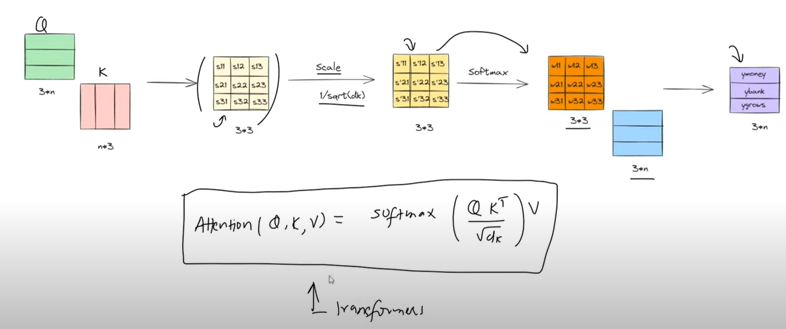 Q
3*n
K
n*3
s11 s12 s13
s21 s22 s23
s31 s32 s33
3*3
Scale
1/sqrt(dk)
s'11 s'12 s'13
s'21 s'22 s'23
s'31 s'32 s'33
3*3
Softmax
w11 w12 w13
w21 w22 w23
w31 w32 w33
3*3
3*n
ymoney
ybank
ygrows
3*n
Attention(Q,K,V) = softmax (Q K^T / √dk) V
Transformers